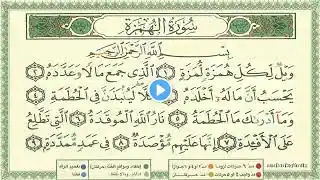 سُورَةُ الْهُمَزَةِ
بِسْمِ اللَّهِ الرَّحْمَٰنِ الرَّحِيمِ
وَيْلٌ لِّكُلِّ هُمَزَةٍ لُّمَزَةٍ ١ الَّذِي جَمَعَ مَالًا وَعَدَّدَهُ ٢
يَحْسَبُ أَنَّ مَالَهُ أَخْلَدَهُ ٣ كَلَّا لَيُنبَذَنَّ فِي الْحُطَمَةِ ٤
وَمَا أَدْرَاكَ مَا الْحُطَمَةُ ٥ نَارُ اللَّهِ الْمُوقَدَةُ ٦ الَّتِي تَطَّلِعُ
عَلَى الْأَفْئِدَةِ ٧ إِنَّهَا عَلَيْهِم مُّؤْصَدَةٌ ٨ فِي عَمَدٍ مُّمَدَّدَةٍ ٩